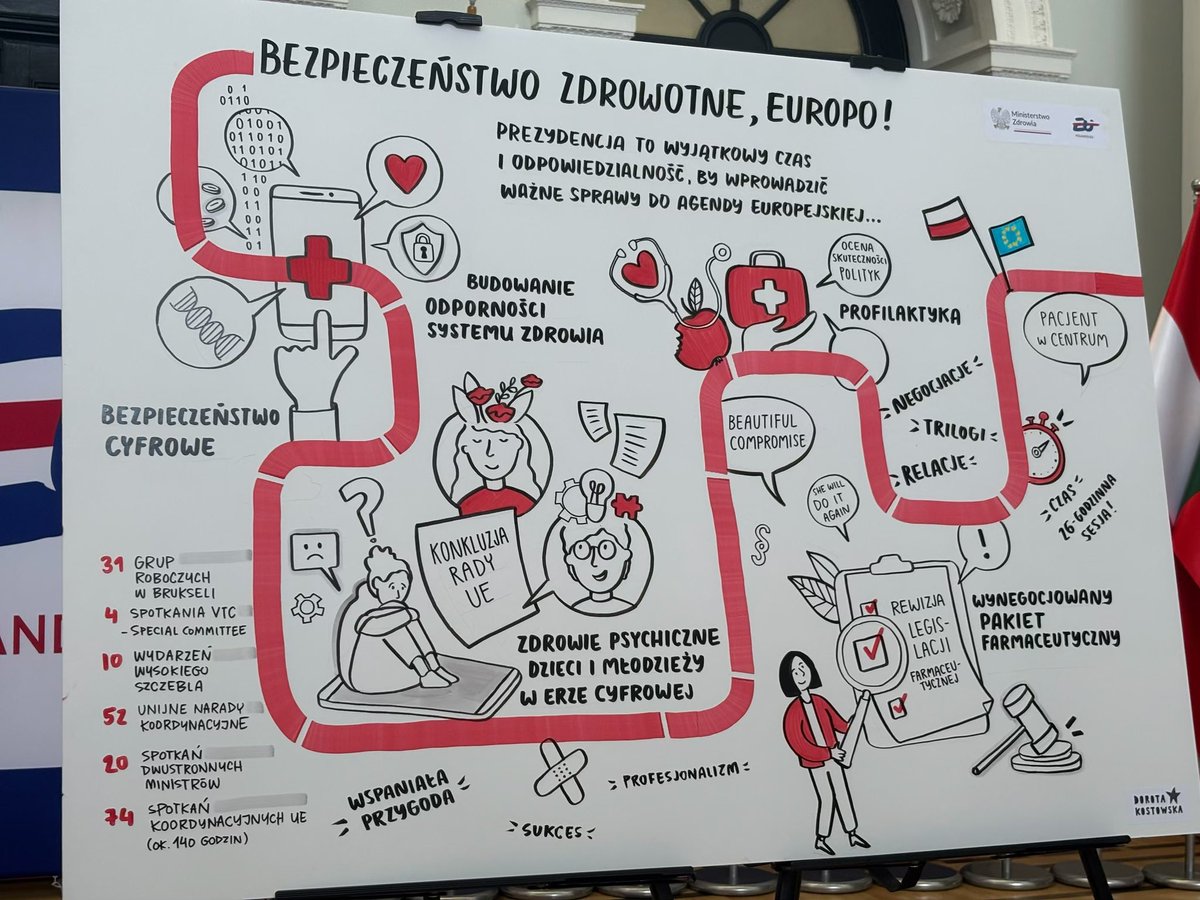 BEZPIECZEŃSTWO ZDROWOTNE, EUROPO!
Ministerstwo
Zdrowia
PREZYDENCJA TO WYJĄTKOWY CZAS
I ODPOWIEDZIALNOŚĆ, BY WPROWADZIĆ
WAŻNE SPRAWY DO AGENDY EUROPEJSKIEJ...
01
0110
01001
011010
011010
10101
10
BUDOWANIE
ODPORNOŚCI
SYSTEMU ZDROWIA
BEZPIECZEŃSTWO
CYFROWE
OCENA
SKUTECZNOŚCI
POLITYK
PROFILAKTYKA
PACJENT
W CENTRUM
NEGOCJACJE
TRILOGI
RELACJE
CZAS
26-GODZINNA
SESJA!
BEAUTIFUL
COMPROMISE
SHE WILL
DO IT
AGAIN
§
?
!
KONKLUZJA
RADY
UE
ZDROWIE PSYCHICZNE
DZIECI I MŁODZIEŻY
W ERZE CYFROWEJ
REWIZJA
LEGIS-
LACJI
FARMACEU-
TYCZNEJ
WYNEGOCJOWANY
PAKIET
FARMACEUTYCZNY
31 GRUP
ROBOCZYCH
W BRUKSELI
4 SPOTKANIA VTC
- SPECIAL COMMITTEE
10 WYDARZEŃ
WYSOKIEGO
SZCZEBLA
52 UNIJNE NARADY
KOORDYNACYJNE
20 SPOTKAŃ
DWUSTRONNYCH
MINISTRÓW
74 SPOTKAŃ
KOORDYNACYJNYCH UE
(OK. 140 GODZIN)
WSPANIAŁA
PRZYGODA
SUKCES
PROFESJONALIZM
DOROTA
KOSTOWSKA
AND